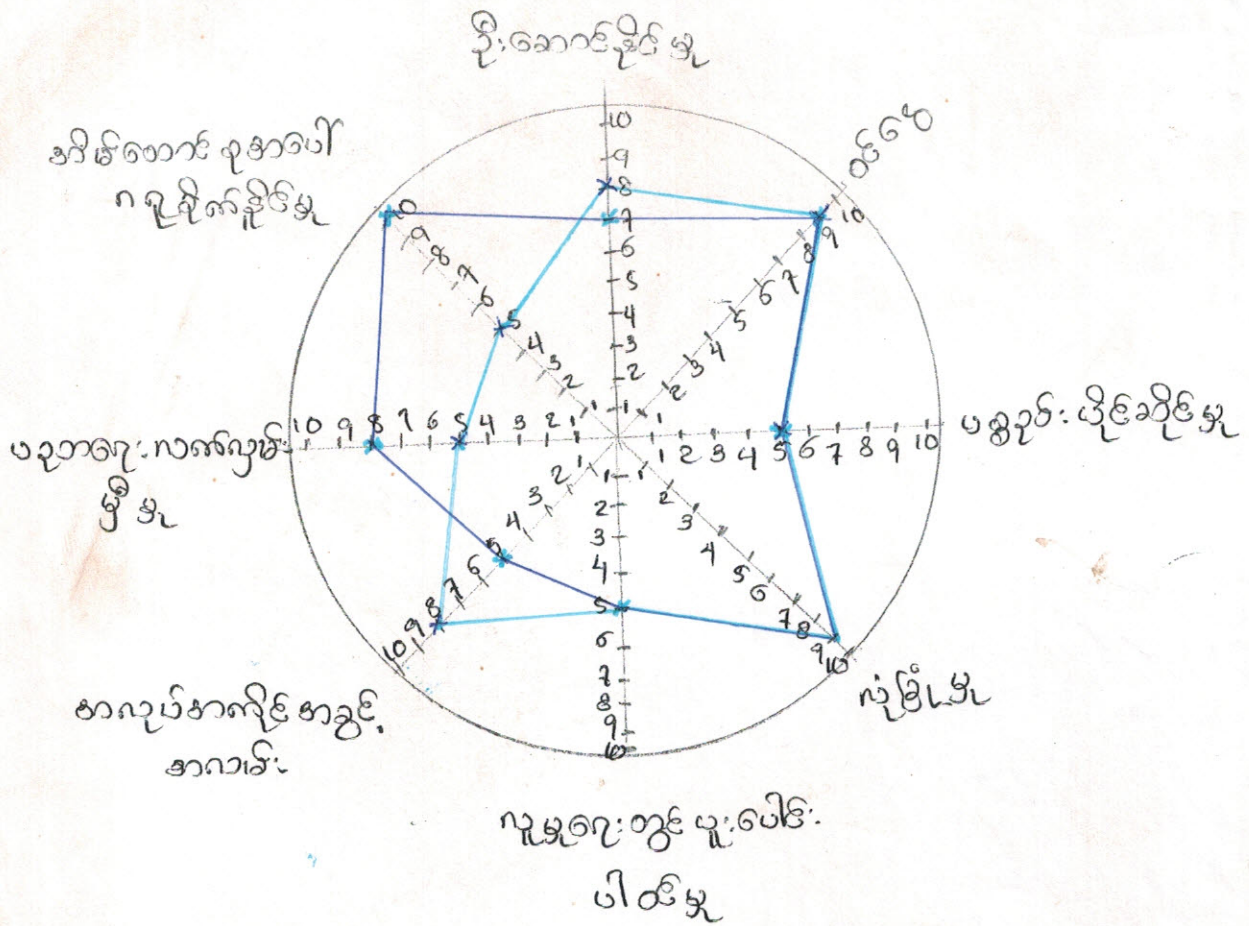 ဦးဆောင်နိုင်မှု
ဝင်ငွေ
ပစ္စည်းပိုင်ဆိုင်မှု
လုံခြုံမှု
လူမှုရေးတွင်ပူးပေါင်း
ပါဝင်မှု
အလုပ်အကိုင်အခွင့်
အလမ်း
ပညာရေးလက်လှမ်း
မှီမှု
အိမ်ထောင်စုအပေါ်
ဂရုစိုက်နိုင်မှု
10
9
8
7
6
5
4
3
2
1
10
9
8
7
6
5
4
3
2
1
1
2
3
4
5
6
7
8
9
10
1
2
3
4
5
6
7
8
9
10
1
2
3
4
5
6
7
8
9
10
1
2
3
4
5
6
7
8
9
10
10
9
8
7
6
5
4
3
2
1
10
9
8
7
6
5
4
3
2
1